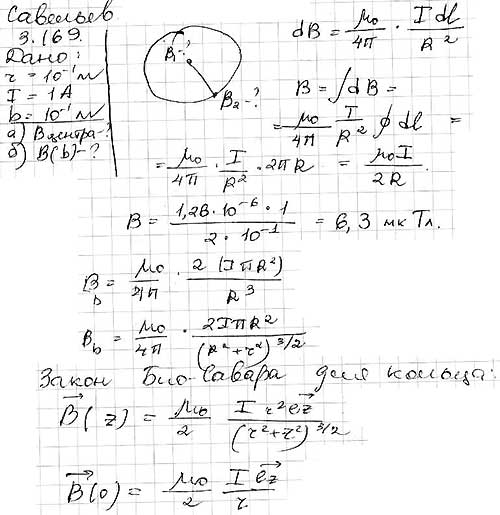 Савельев
3.169.
Дано:
r = 10⁻¹ м
I = 1 А
b = 10⁻¹ м
а) Bцентра-?
б) B(b)-?
B₁-?
B₂-?
dB = μ₀/4π · I dl/R²
B = ∫dB =
= μ₀/4π I/R² ∮ dl =
= μ₀/4π · I/R² · 2πR = μ₀I/2R.
B = 1,26·10⁻⁶·1 / 2·10⁻¹ = 6,3 мкТл.
B_b = μ₀/4π · 2(IπR²)/R³
B_b = μ₀/4π · 2IπR²/(R²+r²)^3/2
Закон Био-Савара для кольца:
B⃗(z) = μ₀/2 I r² e⃗z/(r²+z²)^3/2
B⃗(0) = μ₀/2 I e⃗z/r